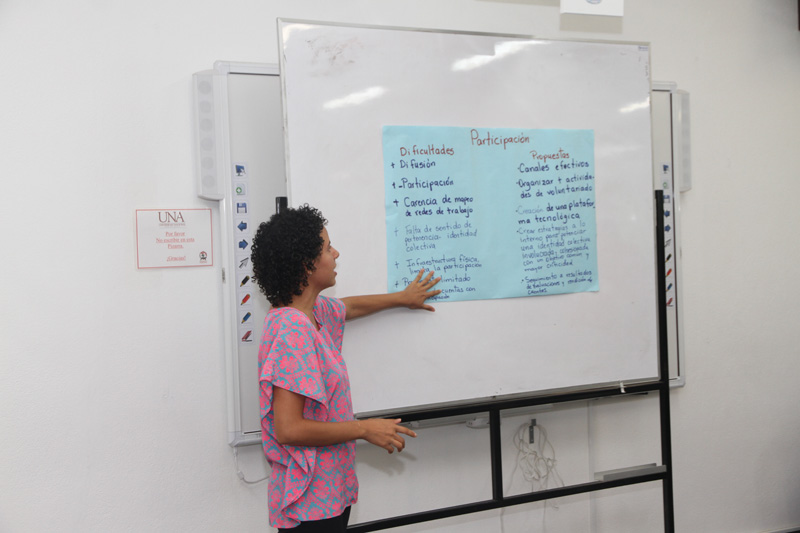 Participación
Dificultades
+ Difusión
+ -Participación
+ Carencia de mapeo
de redes de trabajo
+ Falta de sentido de
pertenencia identidad
colectiva
+ Infraestructura física
la participación
limitado
cuentas con
Propuestas
-Canales efectivos
-Organizar + activida-
des de voluntariado
-Creación de una platafor
ma tecnológica
-Crear estrategias a lo
interno para potenciar
una identidad colectiva
con un objetivo común y
mayor efectividad
-Seguimiento a resultados
de evaluaciones y rendición de
cuentas
UNA